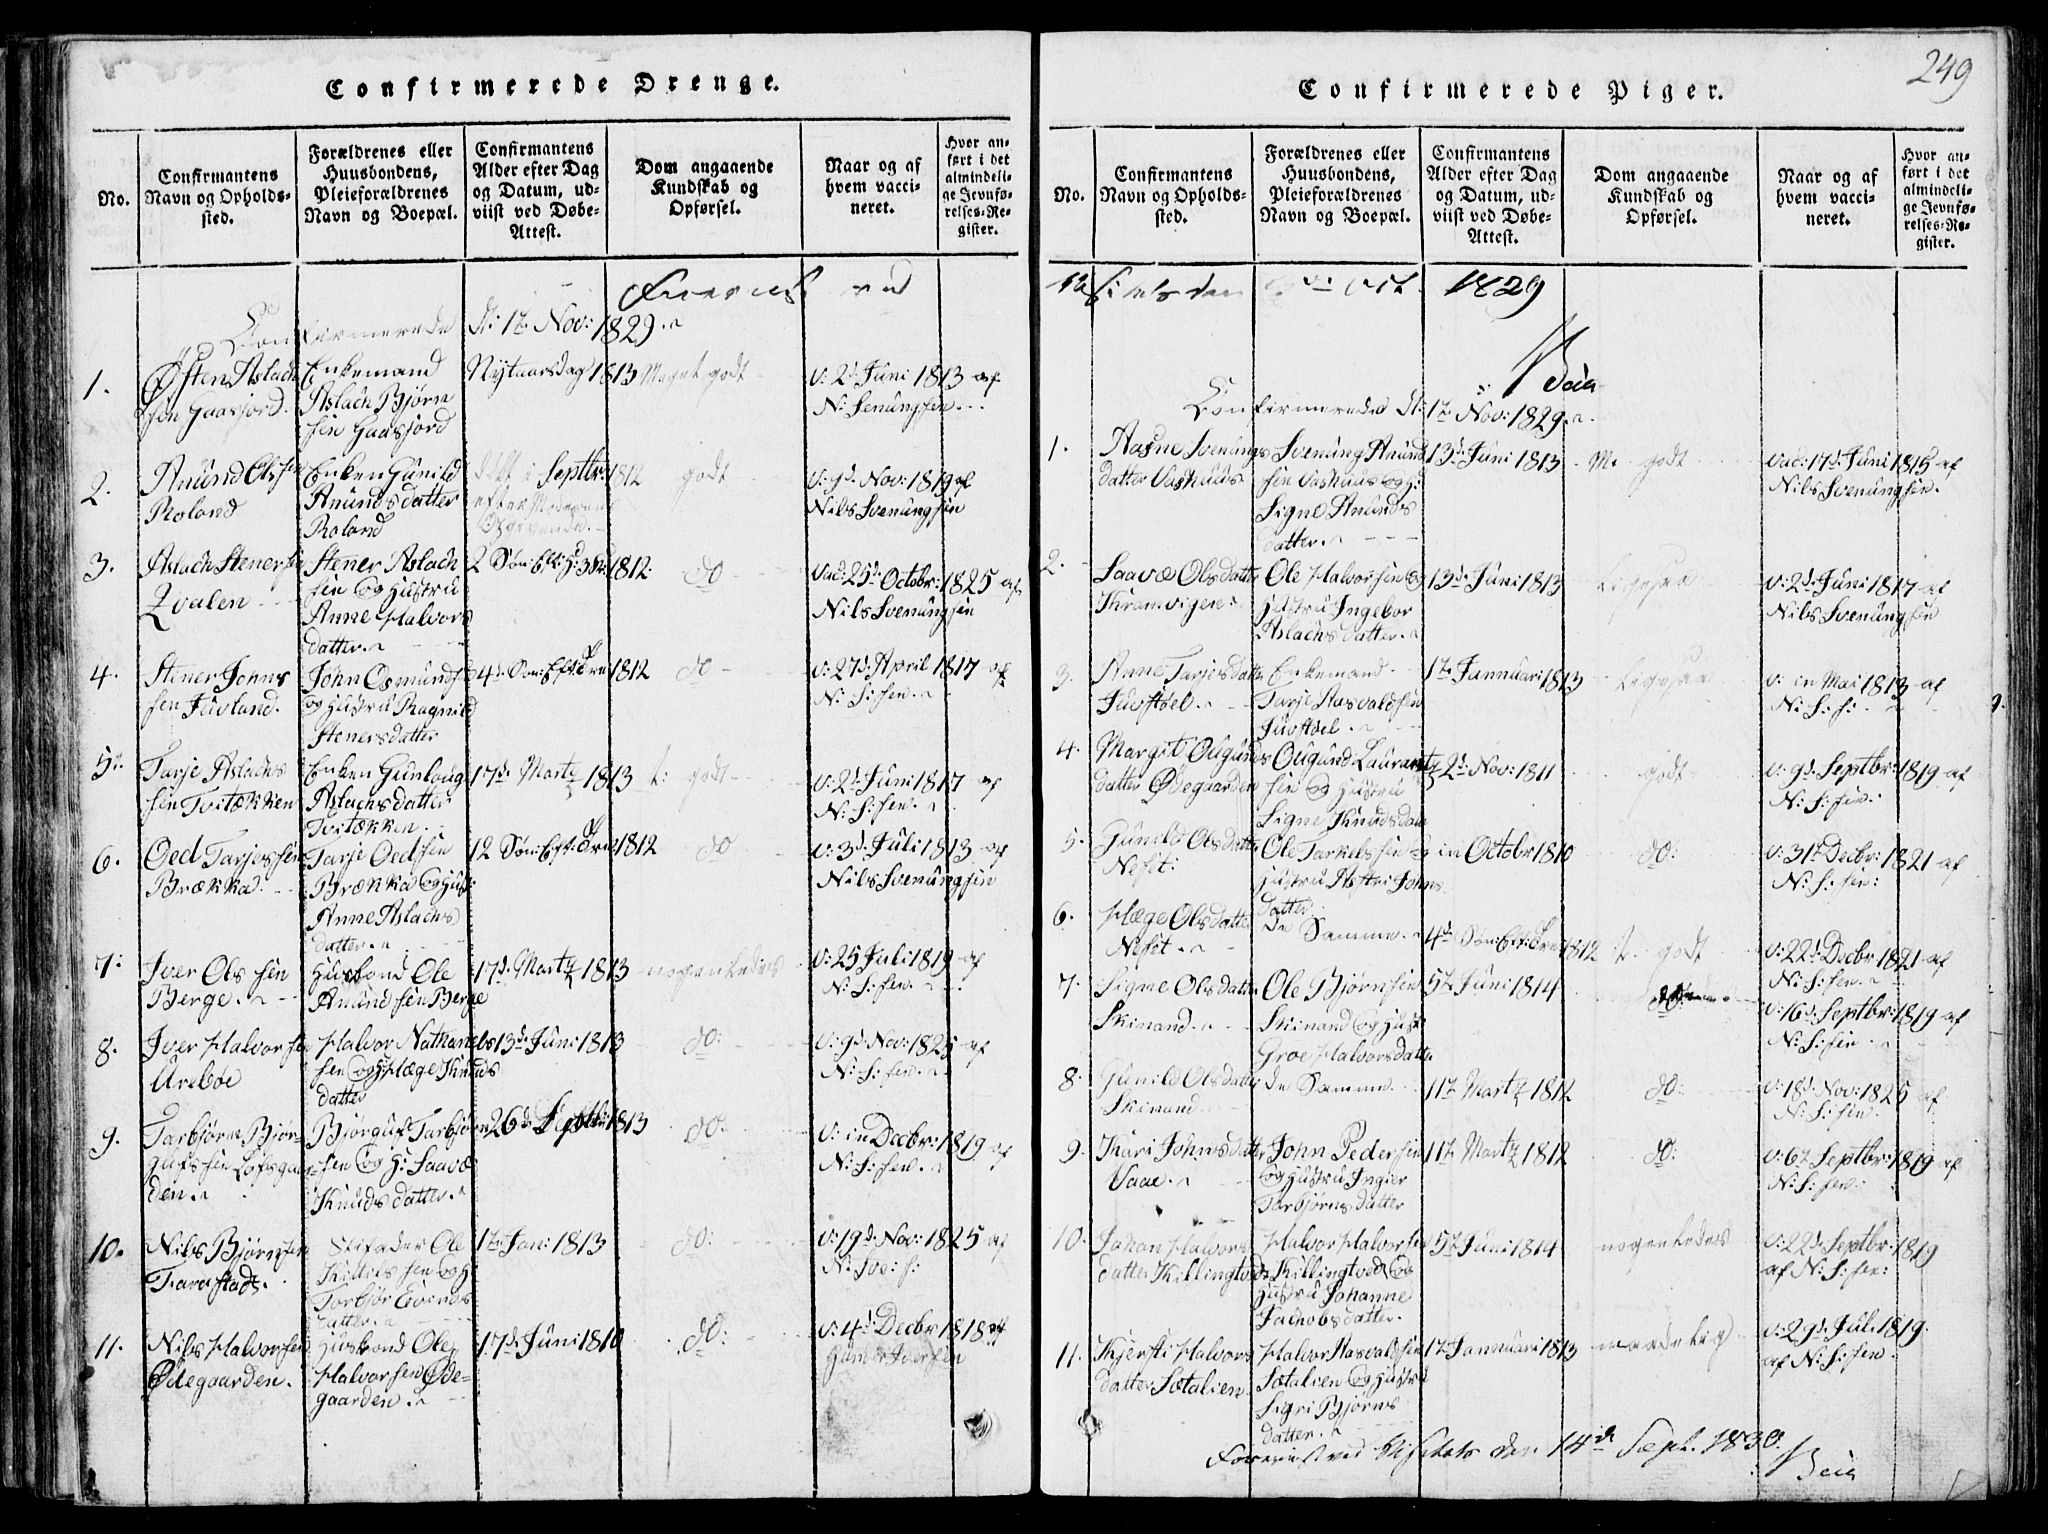 249
Confirmerede Drenge.
No.
Confirmantens
Navn og Opholds-
sted.
Forældrenes eller
Huusbondens,
Pleieforældrenes
Navn og Boepæl.
Confirmantens
Alder efter Dag
og Datum, ud-
viist ved Døbe-
Attest.
Dom angaaende
Kundskab og
Opførsel.
Naar og af
hvem vacci-
neret.
Hvor an-
ført i det
almindeli-
ge Jevnfø-
relses-Re-
gister.
Confirmerede d: 1te Nov: 1829.
1.
Østen Aslach
sen Gaasjord.
Enkemand
Aslach Bjørn
sen Gaasjord
Nytaarsdag 1813
Meget godt
v: 2d Juni 1813 af
N: Svenungsen
2.
Anund Olssen
Roland
Enken Gunild
Anundsdatter
Roland
født i Septbr: 1812
efter Moderens
Opgivende.
godt
v: 9d Nov: 1819 af
Nils Svenungsen
3.
Aslach Stenersen
Qvalen
Stener Aslach
sen og Hustru
Anne Halvors
datter.
1812
do
vac: 25d Octobr: 1825 af
Nils Svenungsen
4.
Stener Johns
sen Juvland.
John Osmunds
og Hustru Ragnild
Stenersdatter
4de Søn: Eft: Tre: 1812
do
v: 27d April 1817 af
N: S: sen.
5.
Tarje Aslachs
sen Tvitækken
Enken Gunloug
Aslachsdatter
Tvitækken.
17d Martz 1813
t: godt
v: 2d Juni 1817 af
N: S: sen.
6.
Oed Tarjessen
Brækka.
Tarje Oedsen
Brækka og Hust:
Anne Aslachs
datter.
12 Søn: Eft: Tre: 1812
do
v: 3d Juli 1813 af
Nils Svenungsen
7.
Iver Olssen
Berge.
Husbond Ole
Anundsen Berge
17d Martz 1813
nogenledes
v: 25 Juli 1819 af
N: S: sen.
8.
Iver Halvorsen
Urebøe
Halvor Nathanels
sen og Hæge Knuds
datter
13d Juni 1813
do:
v: 9d Nov: 1825 af
N: S: sen.
9.
Tarbjørn Bjør-
gufssen Lofsgaar-
den.
Bjørguf Tarbjørn
sen og H: Saavæ
Knudsdatter.
26d Septbr: 1813
do:
v: in Decbr: 1819 af
N: S: sen.
10.
Nils Bjørnsen
Farastad.
Stifader Ole
Kittils sen og H
Torbjør Eivends
datter.
1te Jan: 1813
do:
v: 19d Nov: 1825 af
N: Sve: s:
11.
Nils Halvorsen
Ødegaarden.
Husbond Ole
Halvorsen Øde-
gaarden.
17d Juni 1810
do:
v: 4d Decbr 1818 af
Confirmerede Piger.
No.
Confirmantens
Navn og Opholds-
sted.
Forældrenes eller
Huusbondens,
Pleieforældrenes
Navn og Boepæl.
Confirmantens
Alder efter Dag
og Datum, ud-
viist ved Døbe-
Attest.
Dom angaaende
Kundskab og
Opførsel.
Naar og af
hvem vacci-
neret.
Hvor an-
ført i det
almindeli-
ge Jevnfø-
relses-Re-
gister.
1829
Confirmerede d: 1te Nov: 1829.
1.
Aasne Svenungs
datter Vashuus.
Svenung Anund
sen Vashuus og H:
Signe Anunds
datter.
13d Juni 1813
M. godt
vac: 17d Juni 1815 af
Nils Svenungsen.
2.
Saavæ Olsdatter
Kramvigen.
Ole Halvorsen og
Hustru Ingebor
Aslachsdatter.
13d Juni 1813
Ligesaa
v: 2d Juni 1817 af
Nils Svenungsen
3.
Anne Tarjesdatter
Juvstøel.
Enkemand
Tarje Aasvaldsen
Juvstøel
1te Jannuari 1813
Ligesaa
v: in Mai 1813 af
N: S: s:
4.
Margit Ougunds
datter Ødegaarden
Ougund Laurantz
sen og Hustru
Signe Knudsdatter
2d Nov: 1811
godt
v: 9d Septbr: 1819 af
N: S: sen.
5.
Gunild Olsdatter
Nesset:
Ole Tarkelssen og
Hustru Astri Johns
datter
in Octobr 1810
do:
v: 31te Decbr: 1821 af
N: S: sen:
6.
Hæge Olsdatter
Nesset.
De Samme.
4de Søn: Eft: Tre: 1812
t. godt
v: 22d Decbr 1821 af
N: S: sen.
7.
Signe Olsdatter
Skinand.
Ole Bjørnsen
Skinand og Hust:
Groe Halvorsdatter
5te Juni 1814
do:
v: 16d Septbr: 1819 af
N: S: sen
8.
Gunild Olsdatter
Skinand.
De Samme
11te Martz 1812
do:
v: 18d Nov: 1825 af
N: S: sen.
9.
Kari Johnsdatter
Vaae.
John Pedersen
og Hustru Ingier
Tarbjørnsdatter
11te Martz 1812
do:
v: 6te Septbr: 1819 af
N: S: sen:
10.
Johan Halvors
datter Killingtved
Halvor Halvorsen
Killingtved og
Hustru Johanne
Jachobsdatter.
5te Juni 1814
nogenledes
v: 22d Septbr: 1819
af N: S: sen:
11.
Kjersti Halvors
datter Sætalien
Halvor Aasvaldsen
Sætalien og Hustru
Sigri Bjørns
datter.
1te Jannuari 1813
maadelig
v: 29d Jul. 1819.
af N: S: sen.
Foreviist ved Visitats den 14de Sept. 1830.